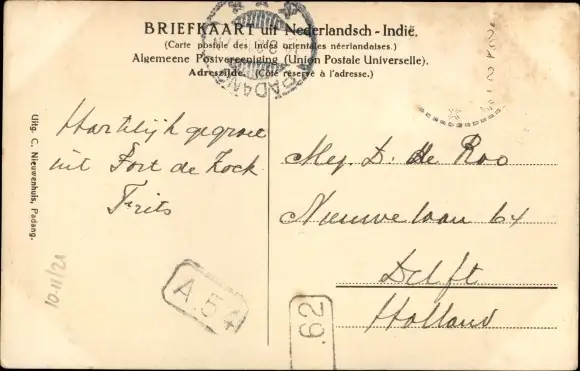 BRIEFKAART uit Nederlandsch-Indië.
(Carte postale des Indes orientales néerlandaises.)
Algemeene Postvereeniging (Union Postale Universelle).
Adreszijde. (Côté réservé à l'adresse.)
PADANG
Uitg. C. Nieuwenhuis, Padang.
Hartelijk gegroet
uit Fort de Kock
Frits
10-11/21
A.54
.62
Mej. D. de Roo
Nieuwe laan 64
Delft
Holland